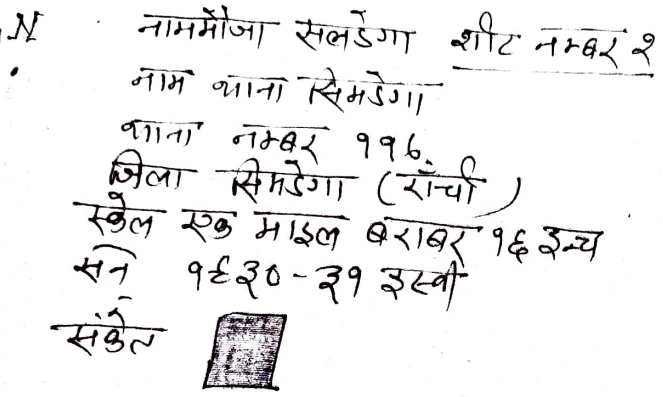 N नाममौजा सलडेगा शीट नम्बर २
नाम थाना सिमडेगा
थाना नम्बर ११६.
जिला सिमडेगा (राँची)
स्केल एक माइल बराबर १६ इन्च
सन् १९३०-३१ इस्वी
संकेत